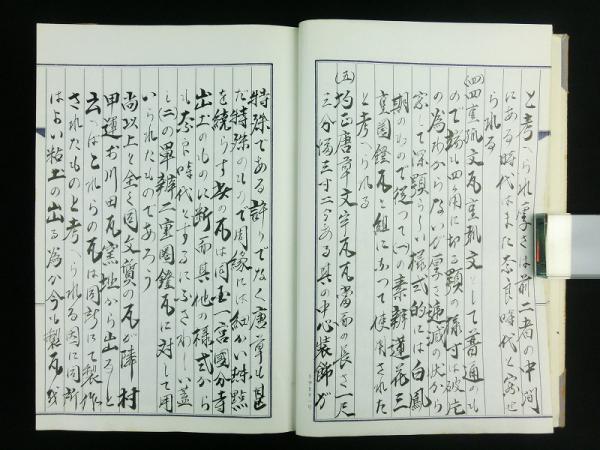 と考へられ厚さは前二者の中間
にある時代はまた奈良時代と考に
られる
(四)重弧文瓦重弧文として普通のも
のである四角に切る顎の様すは破片
の為わからないが厚さ減の点から
家して深顎らしい様式的には白鳳
期のもので従つて一つの素弁蓮花三
重圏鐙瓦と組になつて使用された
と考へられる
(五)均正唐草文宇瓦瓦当面の長さ一尺
三分幅三寸二分ある其の中心装飾が
特殊である許りでなく唐草も甚
だ特殊のもので周縁には細かい珠点
を続らす此の瓦は同国一宮国分寺
出土のものに断面其他の様式から
も奈良時代とするにふさわしい並
に(二)の単弁二重圏鐙瓦に対して用
いられたものであろう
尚以上と全く同文質の瓦が隣村
甲運村川田瓦窯址から出ると
云へばこれらの瓦は同所にて製作
されたものと考へられる因に同所
はよい粘土の出る為か今も製瓦が